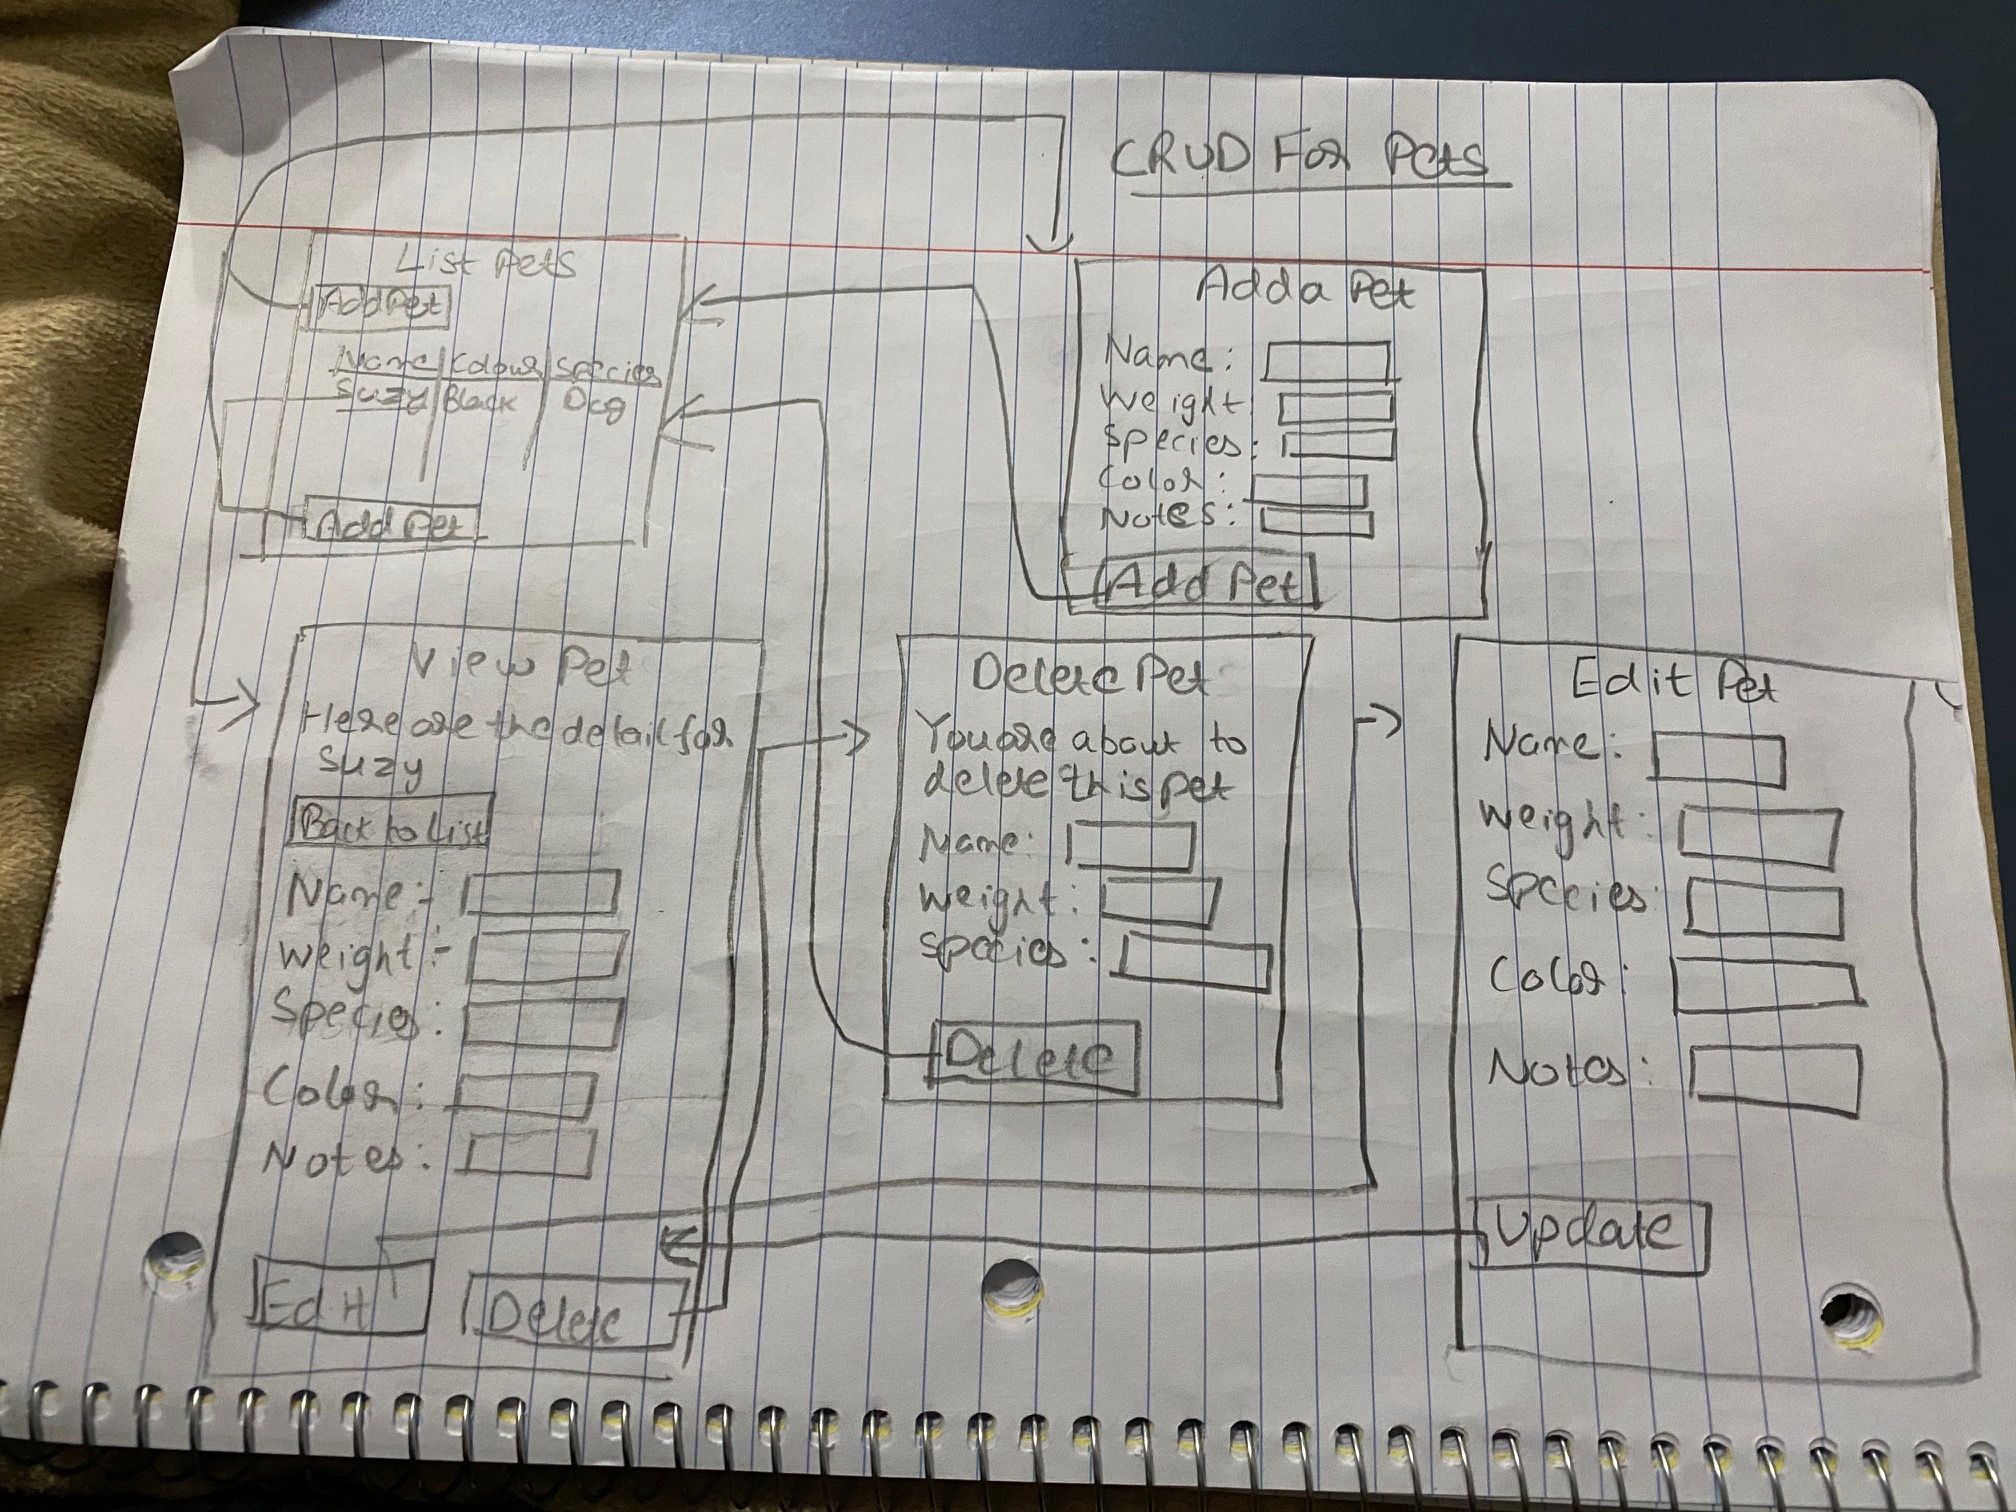 CRUD For Pets
List Pets
Add Pet
Name Colour Species
Suzy Black Dog
Add Pet
Add a Pet
Name:
Weight:
Species:
Color:
Notes:
Add Pet
View Pet
Here are the detail for
Suzy
Back to List
Name:-
Weight:-
Species:
Color:
Notes:
Edit
Delete
Delete Pet
You are about to
delete this pet
Name:
Weight:
Species:
Delete
Edit Pet
Name:
Weight:
Species:
Color:
Notes:
Update